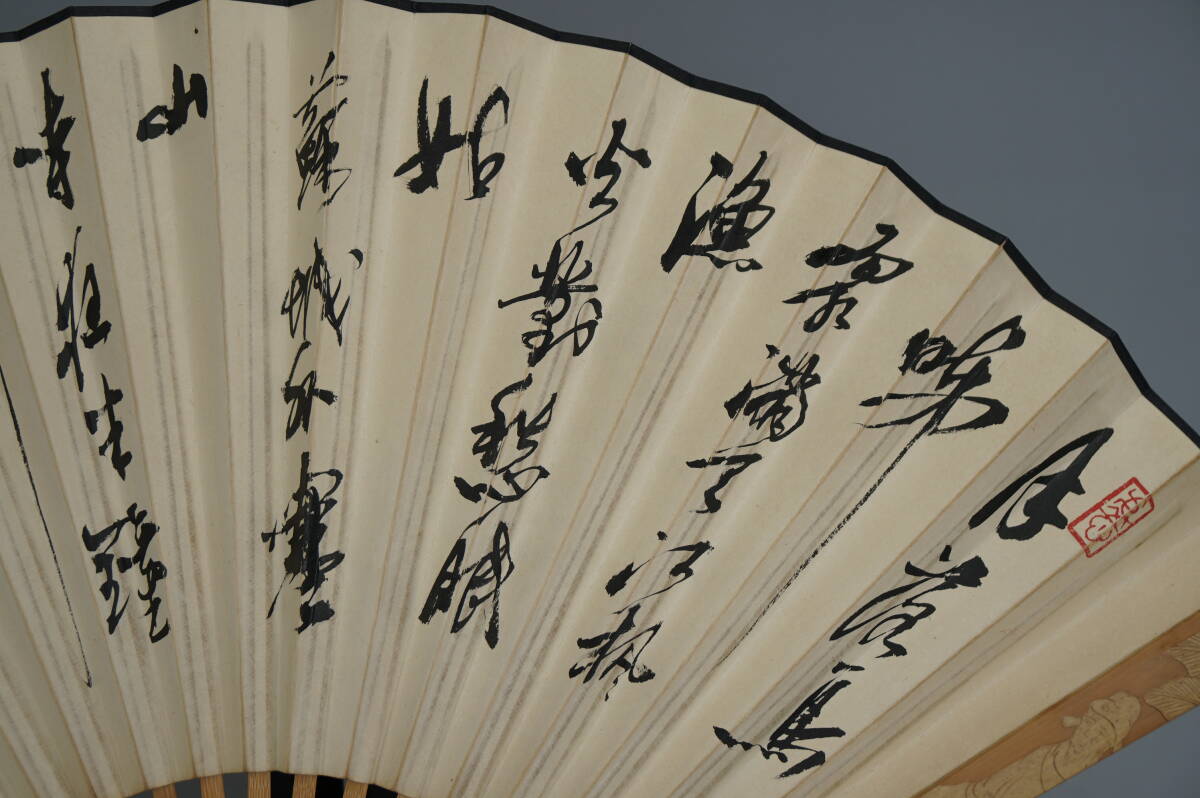 月落烏
啼
霜滿天江楓
漁
火對愁眠
姑
蘇城外寒
山
寺夜半鐘